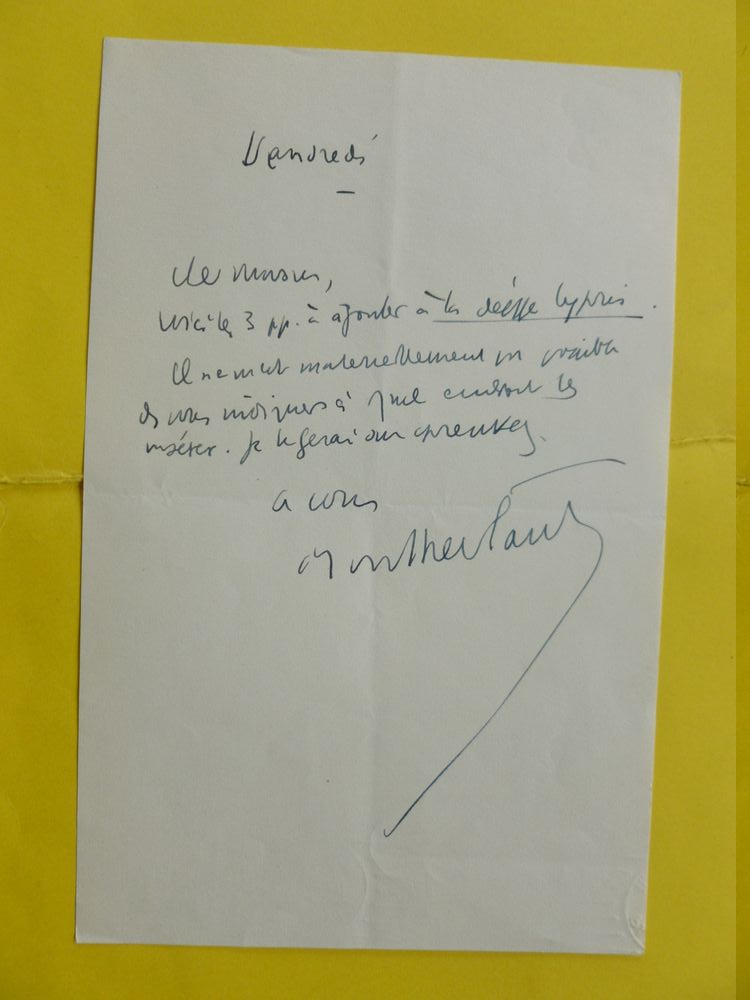 Vendredi
Voici les 3 pp. à ajouter à la déesse Cypris.
Il ne m'est matériellement pas possible
de vous indiquer à quel endroit les
insérer. Je le ferai sur épreuves.
à vous
Montherlant